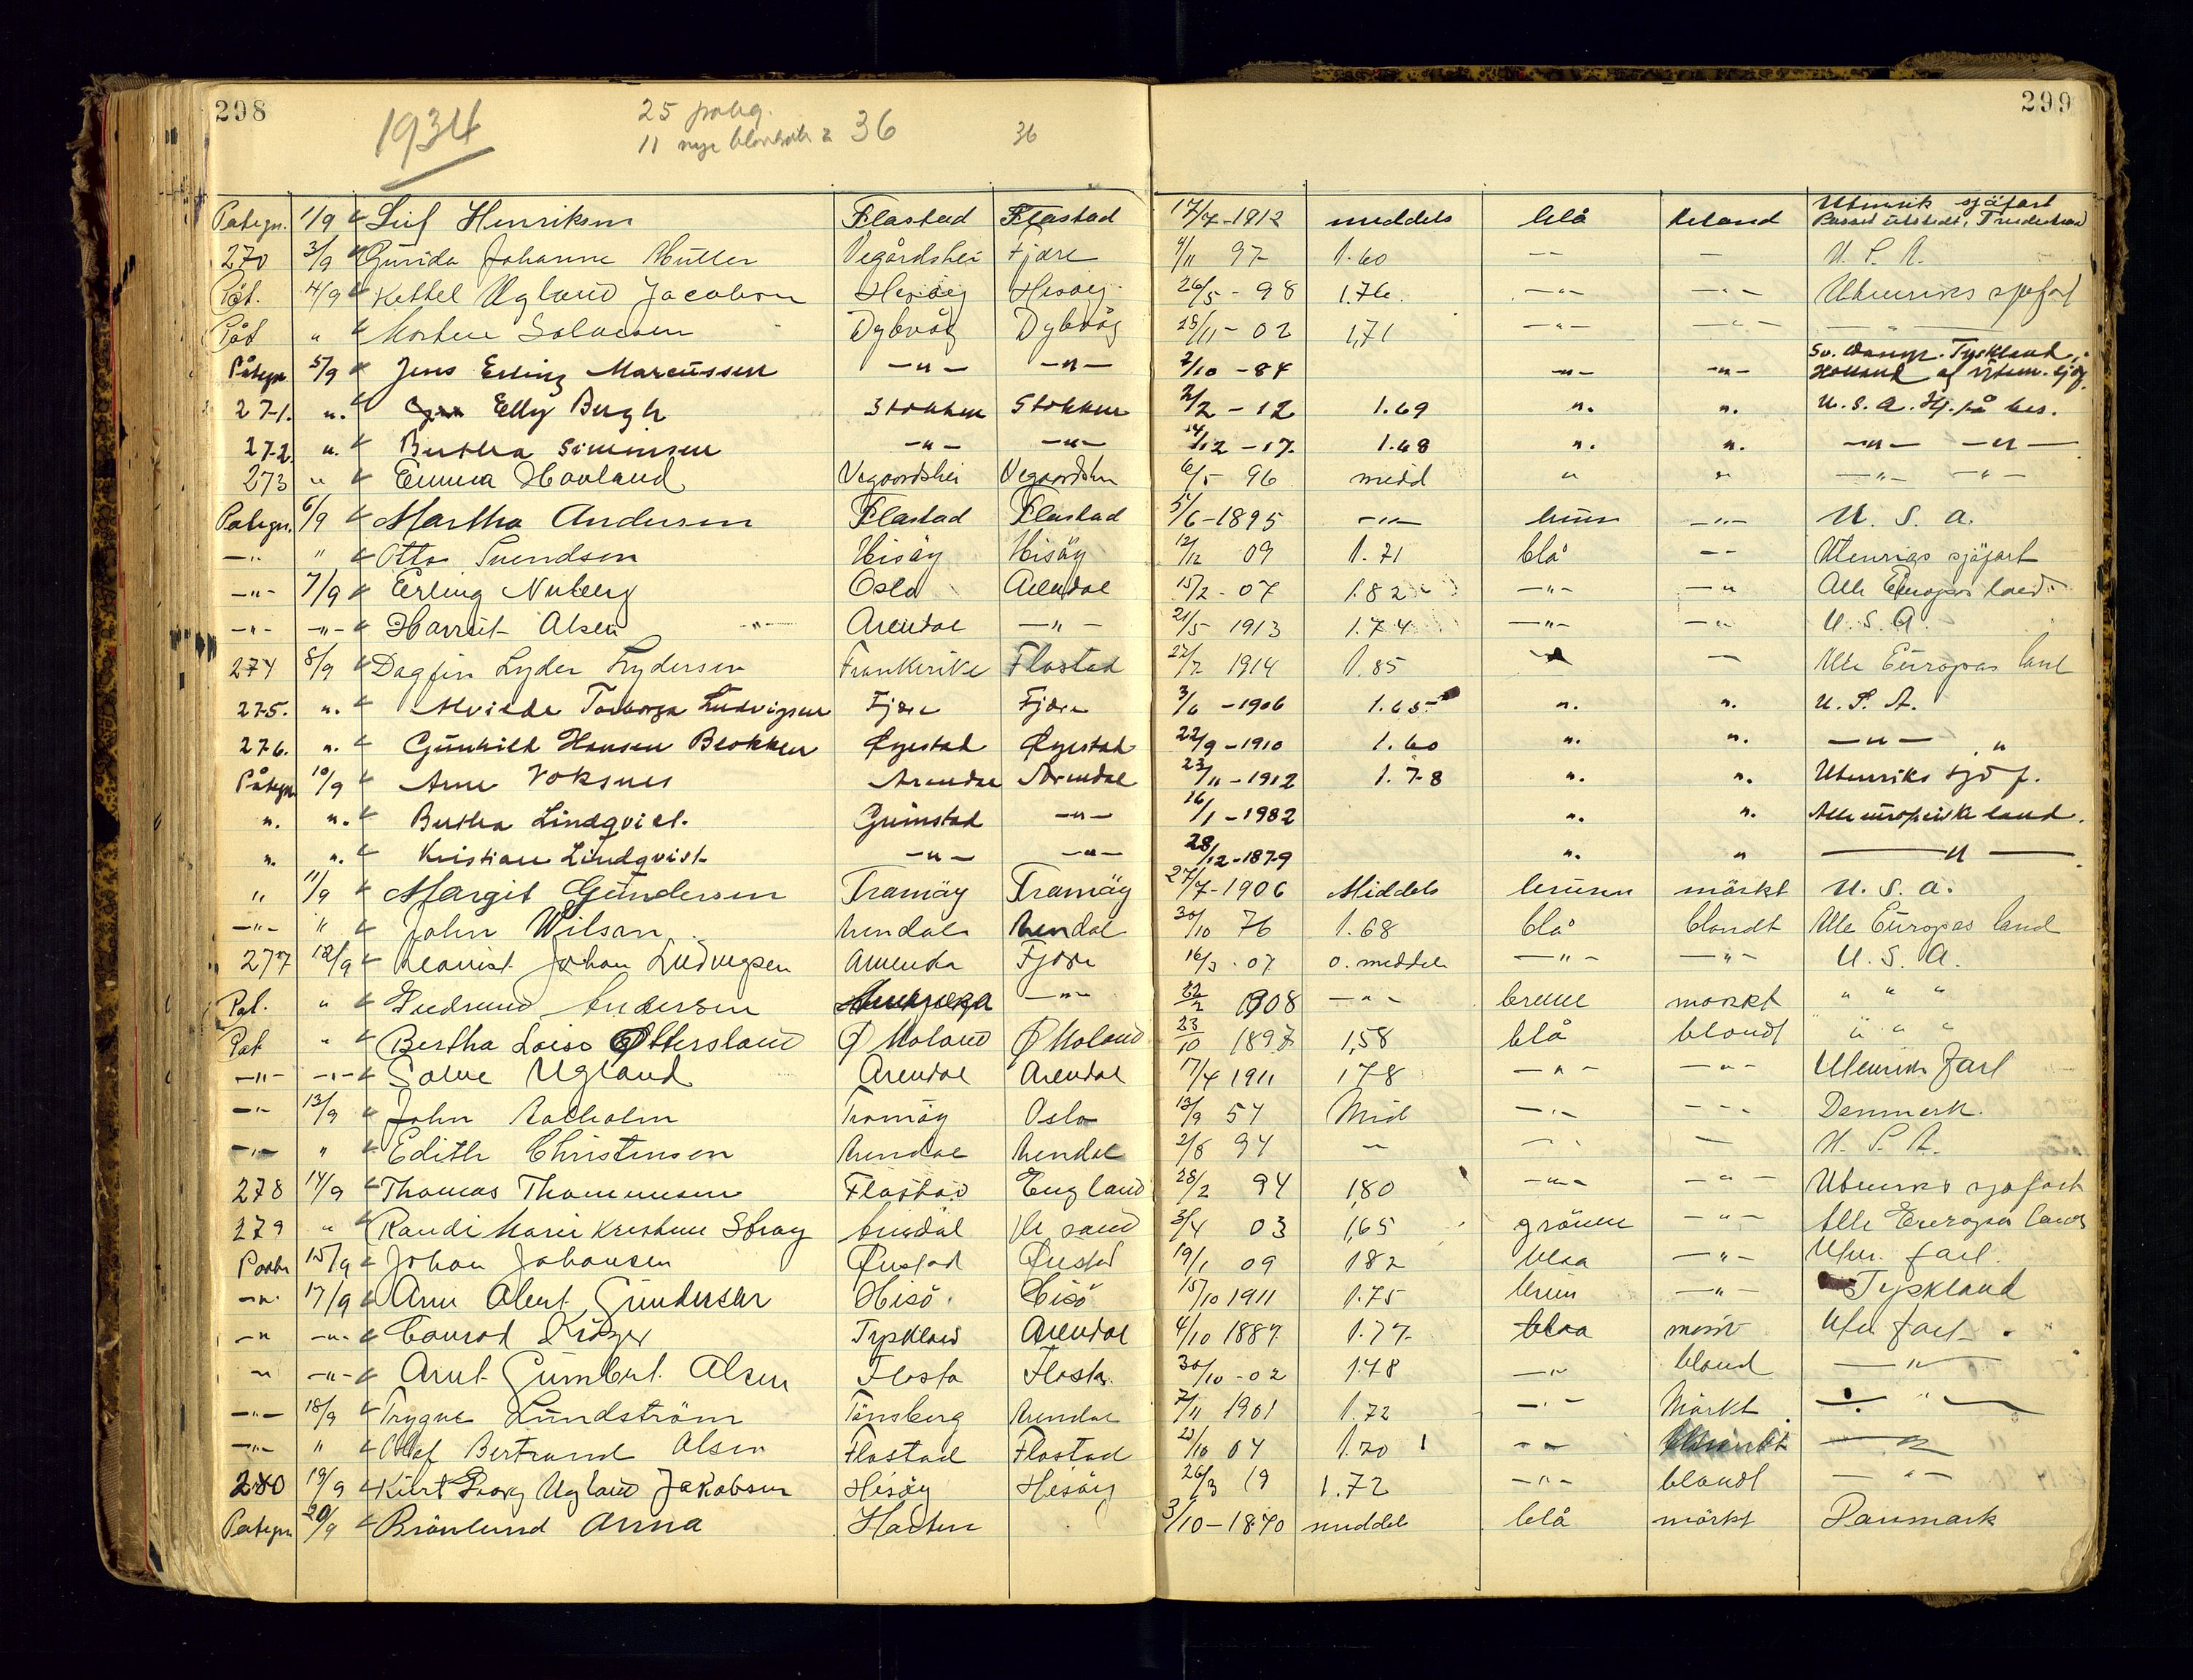 298
299
1934
25 påteg.
11 nye 36
36
Påtegn. 1/9 Leif Henriksen Flastad Flastad 17/7-1912 meddels blå bland Utenrik sjøfart
Passet utstedt, Fredrikstad
270 3/9 Gunida Johanne Müller Vegårdshei Fjære 4/11 97 1.60 -- — U. S. A.
Påt. 4/9 Kettel Ugland Jacobsen Hisøy Hisøy 26/5 - 98 1.76. -"- -"- Utenriks sjøfart
Påt " Morten Salvesen Dybvåg Dybvåg 28/11 - 02 1,71 -"- -"- -"-
Påtegn. 5/9 Jens Erling Marcussen -"- -"- 2/10 - 84 -"- -"- Sv. Danm. Tyskland,
Holland og Utenr. sjøf.
271. ". Elly Bergh Stokken Stokken 2/2 - 12 1.69 ". ". U. S. A. Hj. på bes.
272. ". Bertha Simonsen -"- -"- 14/12 - 17. 1.68 ". ". -"- -"-
273 " Emma Hovland Vegaardshei Vegaardshei 6/5 96 midd " " -"- -"-
Påtegn. 6/9 Martha Andersen Flastad Flastad 5/6-1895 -"- brun -"- U. S. A.
-"- " Otto Svendsen Hisøy Hisøy 12/12 09 1.71 blå -- Utenrigs sjøfart
-"- 7/9 Erling Nyberg Oslo Arendal 15/2 - 07 1.82 -"- -" Alle Europas land
-"- -"- Harriet Olsen Arendal -"- 21/5 1913 1.74 -"- -"- U. S. A.
274 8/9 Dagfin Lyder Lydersen Frankrike Flostad 22/7 1914 1.85 — Alle Europas land
275. ". Alvilde Torborga Ludvigsen Fjære Fjære 3/6 - 1906 1.65 ". ". U. S. A.
276. ". Gunhild Hansen Blokken Øyestad Øyestad 22/9 - 1910 1.60 ". ". -"- "
Påtegn 10/9 Arne Voksnes Arendal Arendal 23/11 - 1912 1.78 ". ". Utenriks sjøf.
". ". Bertha Lindqvist. Grimstad -"- 16/1 - 1982 ". ". Alle europeiske land.
". ". Kristian Lindqvist -"- -"- 28/12-1879 ". " -"-
" 11/9 Margit Gundersen Tromøy Tromøy 27/7-1906 Middels brunn mörkt U. S. A.
-"- " John Wilson Arendal Arendal 30/10 76 1.68 blå blandt Alle Europas land
277 12/9 Johan Ludvigsen Amerika Fjære 16/3 - 07 o. meddels -"- -"- U. S. A.
Påt. " Gudrund Andersen Amerika -"- 22/2 1908 -"- brune mørkt " " "
Påt " Bertha Loise Ottersland Ø Moland Ø Moland 23/10 1897 1,58 blå blondt " " "
-"- -"- Salve Ugland Arendal Arendal 17/4 1911 178 -"- -"- Utenriks fart
-"- 13/9 John Tromøy Oslo 13/9 54 Mid -"- -"- Denmark.
-"- " Edith Christensen Arendal Arendal 2/8 94 — - — U. S. A.
278 14/9 Thomas Thommesen Flostad England 28/2 94 1,80 -"- -"- Utenriks sjøfart
279 " Randi Marie Kristine Stray Arendal Kr sand 3/4 03 1,65 grönne -"- Alle Europas land
Påt 15/9 Johan Johansen Øiestad Øiestad 19/1 09 182 blaa -"- Uten. fart.
-"- 17/9 Arne Albert Gundersen Hisö Hisö 15/10 1911 1.75 brun -"- Tyskland
-" -"- Conrad Kröger Tyskland Arendal 4/10 1887 1.77 blaa mørk Uten fart - "
" -"- Arnt Gumbert Olsen Flosta Flosta. 30/10 - 02 1.48 -"- blond -"-
-"- 18/9 Trygve Lundström Tönsberg Arendal 7/11 1901 1.72 -"- Mörkt -"-
-"- " Olaf Bertrand Olsen Flostad Flostad 23/10 04 1.70 -"- -"-
280 19/9 Kurt Georg Ugland Jakobsen Hisöy Hisöy 26/3 19 1.72 -"- blandt -"-
Påtegn 20/9 Brönlund Anna 3/10 - 1870 meddels blå mörkt Danmark